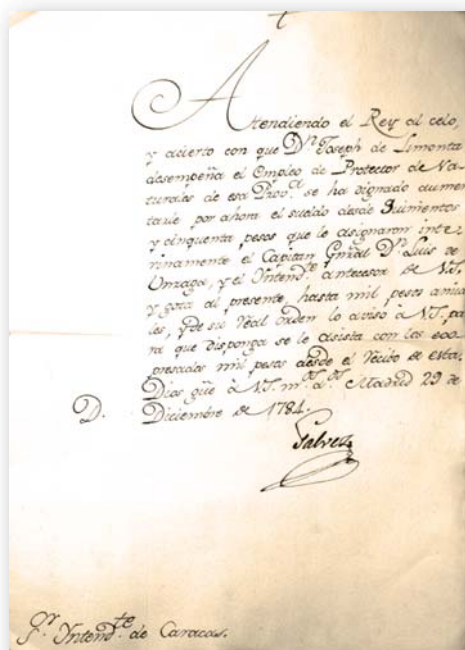 Atendiendo el Rey al celo,
y acierto con que Dⁿ Joseph de Limonta
desempeña el Empleo de Protector de Na-
turales de esa Provᵃ se ha dignado aumen
tarle por ahora el sueldo desde Quinientos
y cinquenta pesos que le asignaron inte-
rinamente el Capitan Gñral Dⁿ Luis de
Unzaga, y el Yntendᵗᵉ antecesor de V.S.
y goza al presente, hasta mil pesos anua
les, y de su Real orden lo aviso à V.S. pa
ra que disponga se le asista con los ex-
presados mil pesos desde el Recibo de esta.
Dios güe à V.S. mˢ aˢ Madrid 29 de
D. Diciembre de 1784.
Galvez
Sᵒʳ Yntendᵗᵉ de Caracas.